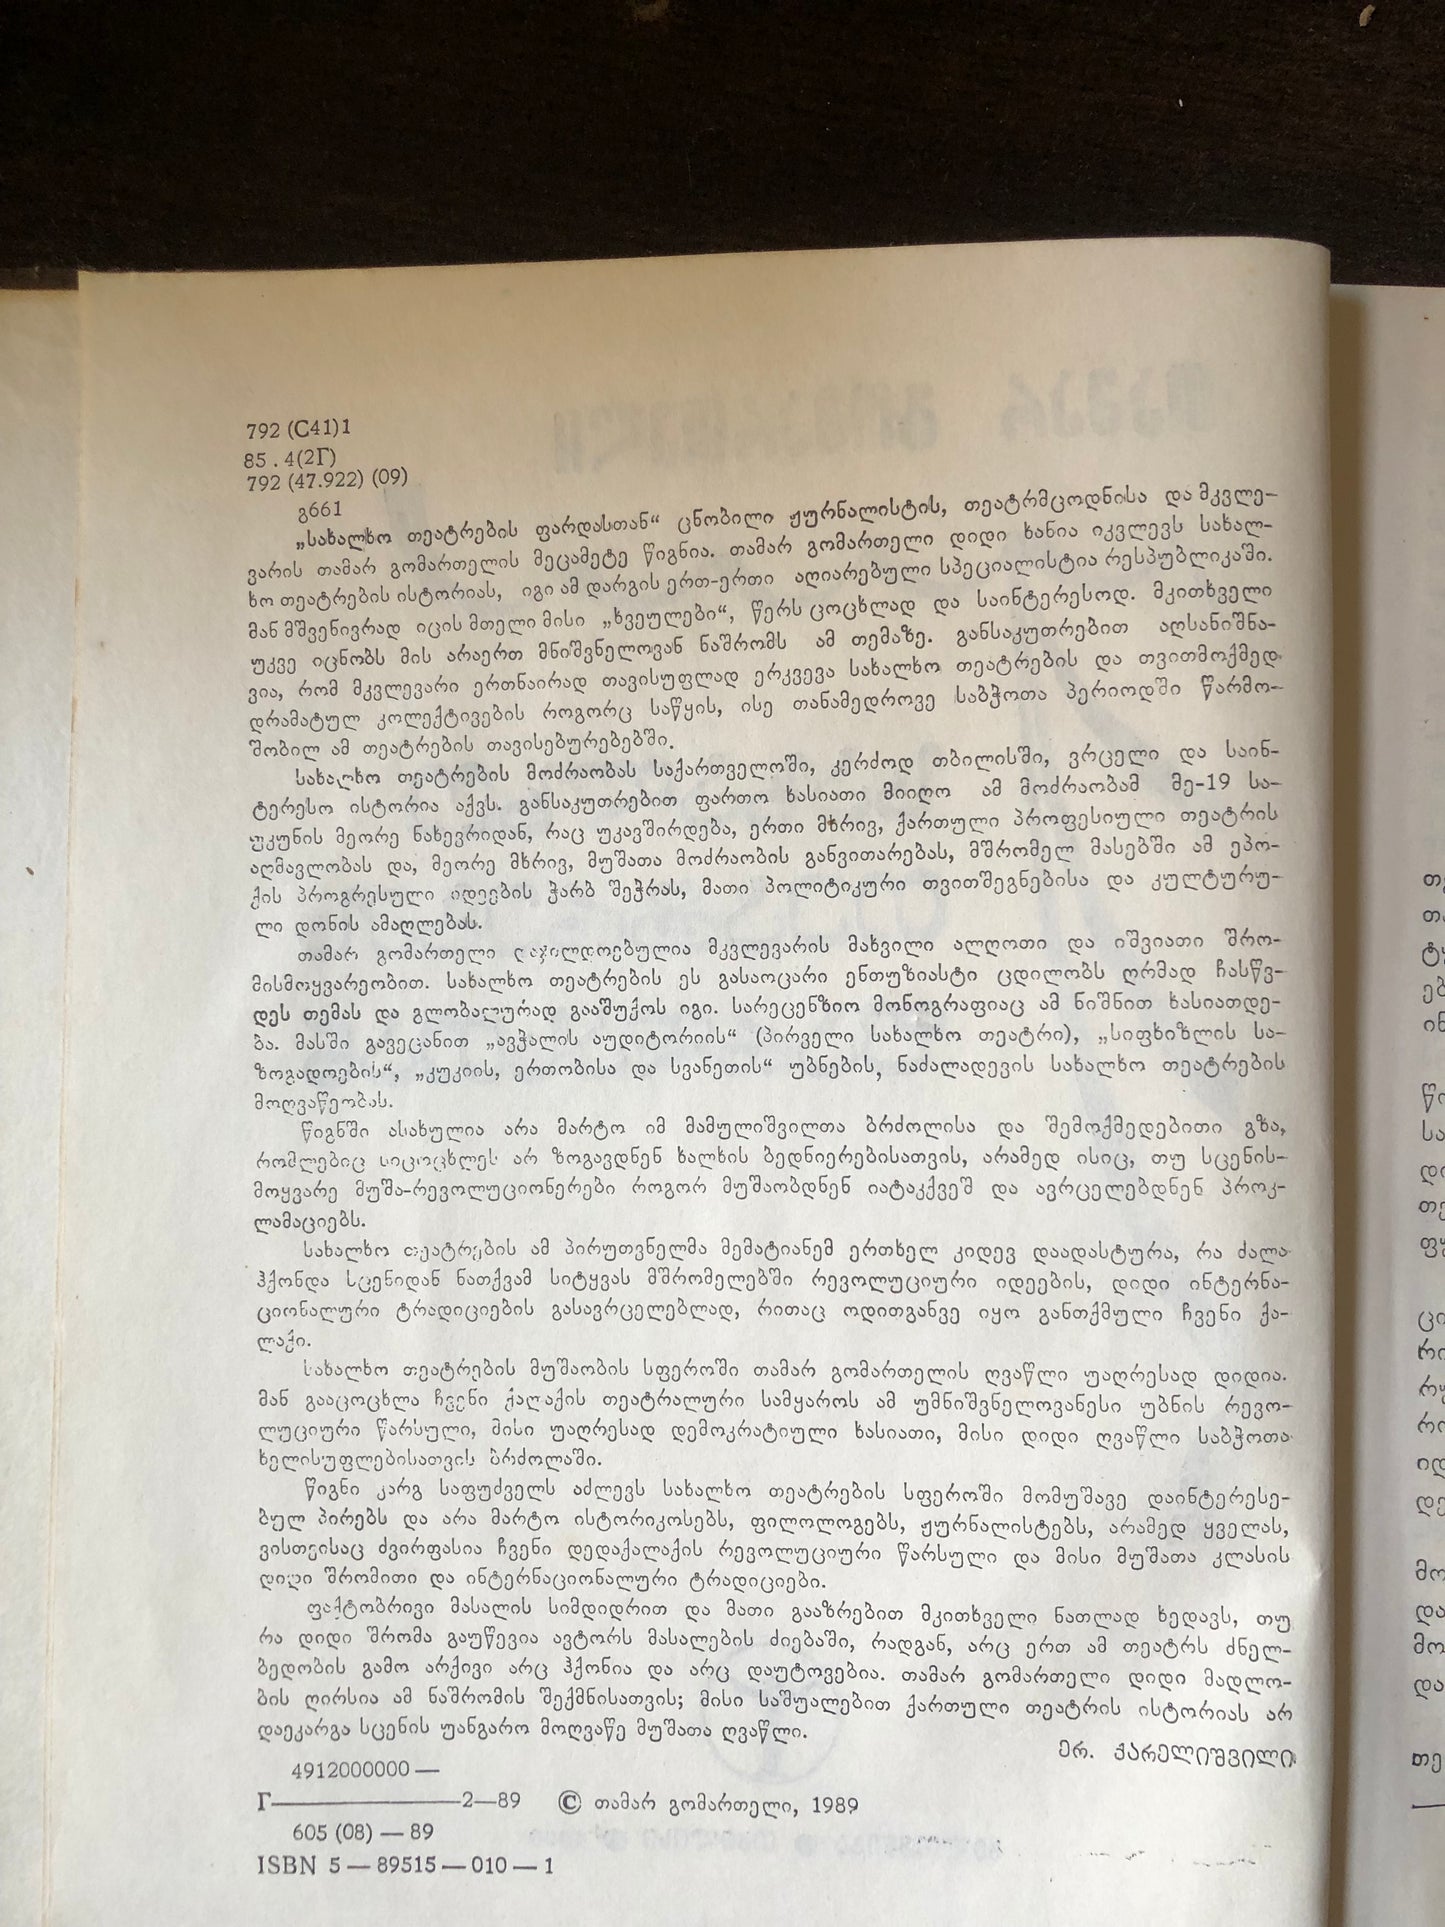 792 (С41)1
85 . 4(2Г)
792 (47.922) (09)
გ661
„სახალხო თეატრების ფარდასთან“ ცნობილი ჟურნალისტის, თეატრმცოდნისა და მკვლე-
ვარის თამარ გომართელის მეცამეტე წიგნია. თამარ გომართელი დიდი ხანია იკვლევს სახალ-
ხო თეატრების ისტორიას, იგი ამ დარგის ერთ-ერთი აღიარებული სპეციალისტია რესპუბლიკაში.
მან მშვენივრად იცის მთელი მისი „ხვეულები“, წერს ცოცხლად და საინტერესოდ. მკითხველი
უკვე იცნობს მის არაერთ მნიშვნელოვან ნაშრომს ამ თემაზე. განსაკუთრებით აღსანიშნა-
ვია, რომ მკვლევარი ერთნაირად თავისუფლად ერკვევა სახალხო თეატრების და თვითმოქმედ
დრამატულ კოლექტივების როგორც საწყის, ისე თანამედროვე საბჭოთა პერიოდში წარმო-
შობილ ამ თეატრების თავისებურებებში.
სახალხო თეატრების მოძრაობას საქართველოში, კერძოდ თბილისში, ვრცელი და საინ-
ტერესო ისტორია აქვს. განსაკუთრებით ფართო ხასიათი მიიღო ამ მოძრაობამ მე-19 სა-
უკუნის მეორე ნახევრიდან, რაც უკავშირდება, ერთი მხრივ, ქართული პროფესიული თეატრის
აღმავლობას და, მეორე მხრივ, მუშათა მოძრაობის განვითარებას, მშრომელ მასებში ამ ეპო-
ქის პროგრესული იდეების ჭარბ შეჭრას, მათი პოლიტიკური თვითშეგნებისა და კულტურუ-
ლი დონის ამაღლებას.
თამარ გომართელი დაჯილდოებულია მკვლევარის მახვილი ალღოთი და იშვიათი შრო-
მისმოყვარეობით. სახალხო თეატრების ეს გასაოცარი ენთუზიასტი ცდილობს ღრმად ჩასწვ-
დეს თემას და გლობალურად გააშუქოს იგი. სარეცენზიო მონოგრაფიაც ამ ნიშნით ხასიათდე-
ბა. მასში გავეცანით „ავჭალის აუდიტორიის“ (პირველი სახალხო თეატრი), „სიფხიზლის სა-
ზოგადოების“, „კუკიის, ერთობისა და სვანეთის“ უბნების, ნაძალადევის სახალხო თეატრების
მოღვაწეობას.
წიგნში ასახულია არა მარტო იმ მამულიშვილთა ბრძოლისა და შემოქმედებითი გზა,
რომლებიც სიცოცხლეს არ ზოგავდნენ ხალხის ბედნიერებისათვის, არამედ ისიც, თუ სცენის-
მოყვარე მუშა-რევოლუციონერები როგორ მუშაობდნენ იატაკქვეშ და ავრცელებდნენ პროკ-
ლამაციებს.
სახალხო თეატრების ამ პირუთვნელმა მემატიანემ ერთხელ კიდევ დაადასტურა, რა ძალა
ჰქონდა სცენიდან ნათქვამ სიტყვას მშრომელებში რევოლუციური იდეების, დიდი ინტერნა-
ციონალური ტრადიციების გასავრცელებლად, რითაც ოდითგანვე იყო განთქმული ჩვენი ქა-
ლაქი.
სახალხო თეატრების მუშაობის სფეროში თამარ გომართელის ღვაწლი უაღრესად დიდია.
მან გააცოცხლა ჩვენი ქალაქის თეატრალური სამყაროს ამ უმნიშვნელოვანესი უბნის რევო-
ლუციური წარსული, მისი უაღრესად დემოკრატიული ხასიათი, მისი დიდი ღვაწლი საბჭოთა
ხელისუფლებისათვის ბრძოლაში.
წიგნი კარგ საფუძველს აძლევს სახალხო თეატრების სფეროში მომუშავე დაინტერესე-
ბულ პირებს და არა მარტო ისტორიკოსებს, ფილოლოგებს, ჟურნალისტებს, არამედ ყველას,
ვისთვისაც ძვირფასია ჩვენი დედაქალაქის რევოლუციური წარსული და მისი მუშათა კლასის
დიდი შრომითი და ინტერნაციონალური ტრადიციები.
ფაქტობრივი მასალის სიმდიდრით და მათი გააზრებით მკითხველი ნათლად ხედავს, თუ
რა დიდი შრომა გაუწევია ავტორს მასალების ძიებაში, რადგან, არც ერთ ამ თეატრს ძნელ-
ბედობის გამო არქივი არც ჰქონია და არც დაუტოვებია. თამარ გომართელი დიდი მადლო-
ბის ღირსია ამ ნაშრომის შექმნისათვის; მისი საშუალებით ქართული თეატრის ისტორიას არ
დაეკარგა სცენის უანგარო მოღვაწე მუშათა ღვაწლი.
ერ. ქარელიშვილი
4912000000 —
Г—————2—89 © თამარ გომართელი, 1989
605 (08) — 89
ISBN 5 — 89515 — 010 — 1